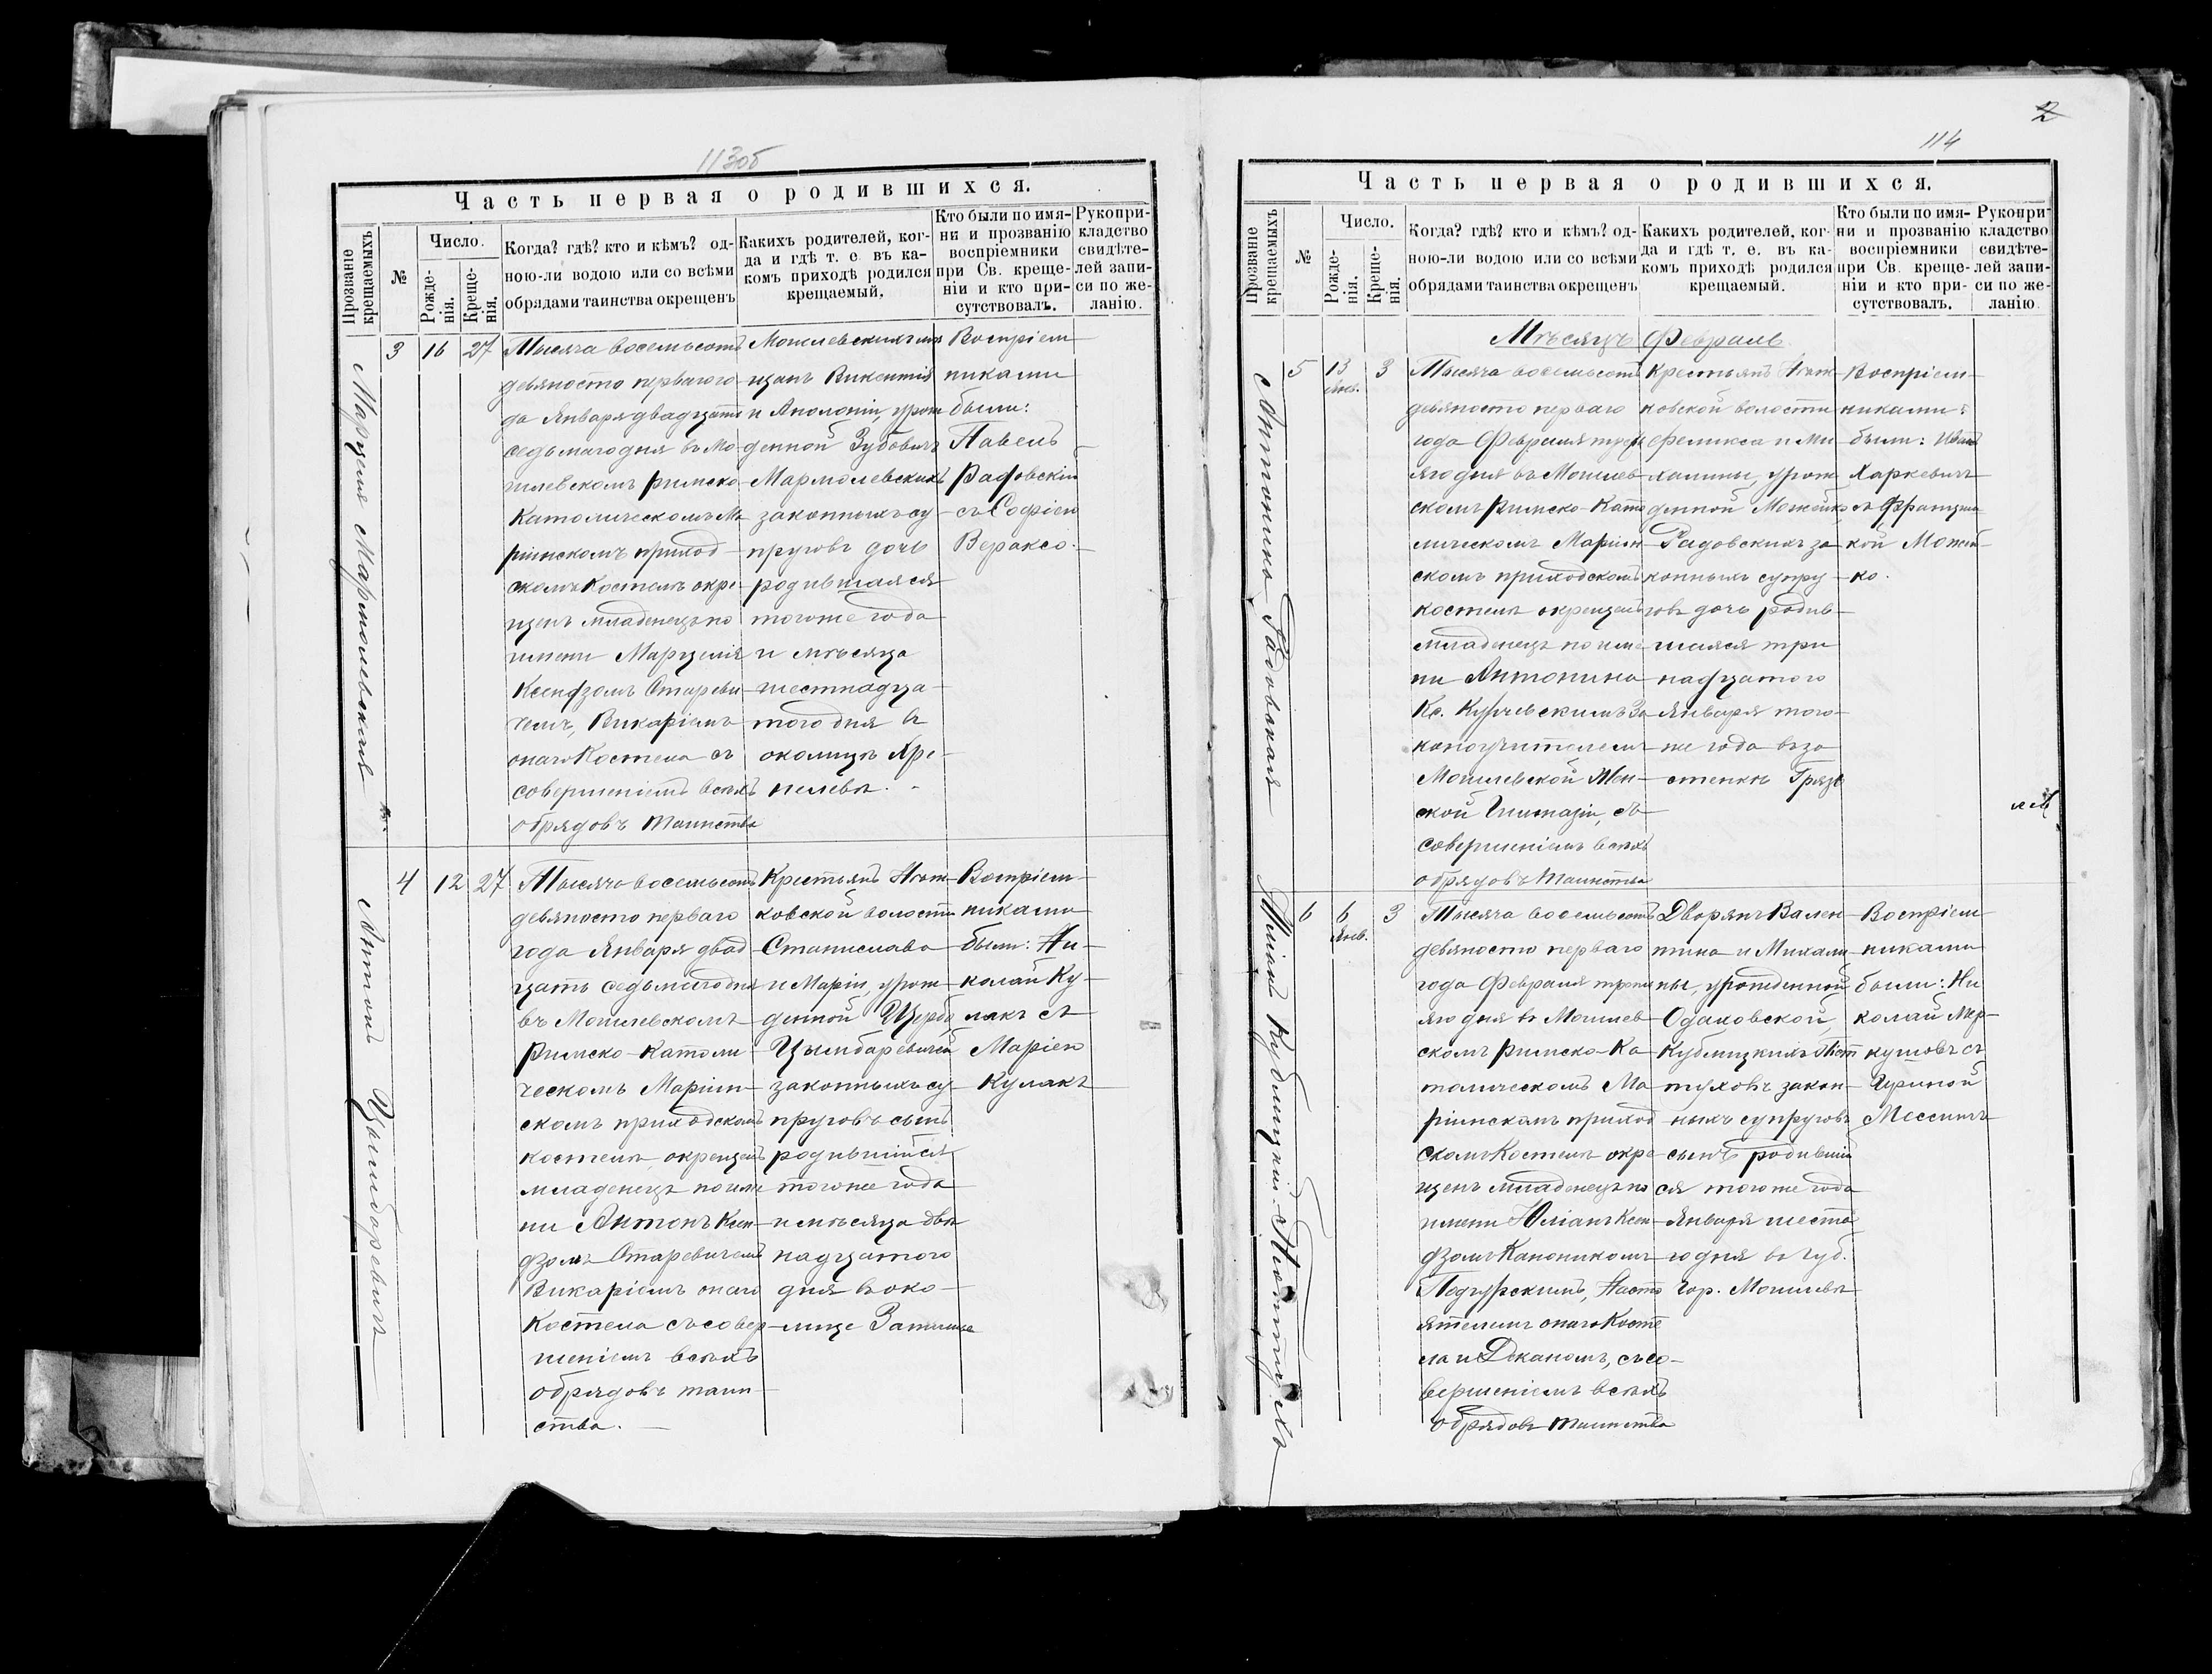 113об
Часть первая о родившихся.
Прозваніе крещаемыхъ
№
Число.
Рожде-
нія.
Креще-
нія.
Когда? гдѣ? кто и кѣмъ? од-
ною-ли водою или со всѣми
обрядами таинства окрещенъ
Какихъ родителей, ког-
да и гдѣ т. е. въ ка-
комъ приходѣ родился
крещаемый.
Кто были по имя-
ни и прозванію
воспріемники
при Св. креще-
ніи и кто при-
сутствовалъ.
Рукопри-
кладство
свидѣте-
лей запи-
си по же-
ланію.
Марцеля Мармолевская
3 16 27
Тысяча восемьсотъ
девяносто перваго го
да Января двадцать
седьмаго дня въ Мо-
гилевскомъ римско
Католическомъ Ма
ріинскомъ приход-
скомъ Костелѣ окре-
щенъ младенецъ по
имени Марцелія
Ксендзомъ Старевич
Викаріемъ
онаго Костела съ
совершеніемъ всѣхъ
обрядовъ таинства
Могилевскихъ мѣ
щанъ Викентія
и Аполоніи, урож
денной Зубовичъ
Мармолевскихъ
законныхъ су-
пруговъ дочь
родившаяся
тогоже года
и мѣсяца
шестнадца-
того дня въ
околицѣ
Воспріем-
никами
были:
Павелъ
съ Софіею
Вераксо.
Антонъ Цымбаревичъ
4 12 27
Тысяча восемьсотъ
девяносто перваго
года Января двад-
цать седьмаго дня
въ Могилевскомъ
римско-католи-
ческомъ Маріин-
скомъ приходскомъ
костелѣ, окрещенъ
младенецъ по име
ни Антонъ Ксен-
дзомъ Старевичемъ
Викаріемъ онаго
Костела съ совер-
шеніемъ всѣхъ
обрядовъ таин-
ства.
Крестьянъ
ковской волости
Станислава
и Маріи, урож-
денной
Цымбаревичей
законныхъ су-
пруговъ сынъ
родившійся
тогоже года
и мѣсяца двѣ
надцатого
дня въ око-
лице
Воспріем-
никами
были: Ни-
колай Ку-
лакъ съ
Маріею
Кулакъ
2
114
Часть первая о родившихся.
Прозваніе крещаемыхъ
№
Число.
Рожде-
нія.
Креще-
нія.
Когда? гдѣ? кто и кѣмъ? од-
ною-ли водою или со всѣми
обрядами таинства окрещенъ
Какихъ родителей, ког-
да и гдѣ т. е. въ ка-
комъ приходѣ родился
крещаемый.
Кто были по имя-
ни и прозванію
воспріемники
при Св. креще-
ніи и кто при-
сутствовалъ.
Рукопри-
кладство
свидѣте-
лей запи-
си по же-
ланію.
Мѣсяцъ Февраль
Антонина Радовская
5 13 Янв. 3
Тысяча восемьсотъ
девяносто перваго
года Февраля треть
яго дня въ Могилев-
скомъ Римско-Като
лическомъ Маріин-
скомъ приходскомъ
костелѣ окрещенъ
младенецъ по име
ни Антонина
Кс. За-
коноучителемъ
Могилевской Жен-
ской Гимназіи, съ
совершеніемъ всѣхъ
обрядовъ таинства
Крестьянъ
ковской волости
Феликса и Ми
халины, урож
денной Можейко,
Радовскихъ за-
конныхъ супру-
говъ дочь родив-
шаяся три
надцатого
Января того-
же года въ за-
стенкѣ
Воспріем-
никами
были: Иванъ
Харкевичъ
съ Францыш
кой Можей-
ко.
Юліанъ Кублицкій-Піоттухъ
6 6 Янв. 3
Тысяча восемьсотъ
девяносто перваго
года Февраля треть
яго дня въ Могилев-
скомъ римско-ка
толическомъ Ма
ріинскомъ приход
скомъ Костелѣ окре
щенъ младенецъ по
имени Юліанъ Ксен-
дзомъ Каноникомъ
Насто
ятелемъ онаго Косте
ла и Деканомъ, съ со-
вершеніемъ всѣхъ
обрядовъ таинства
Дворянъ Вален-
тина и Михали-
ны, урожденной
Одаховской,
Кублицкихъ Піот
туховъ закон-
ныхъ супруговъ
сынъ родивший
ся тогоже года
Января шеста
го дня въ губ.
гор. Могилевѣ
Воспріем-
никами
были: Ни
колай Мер-
куловъ съ
Ириной